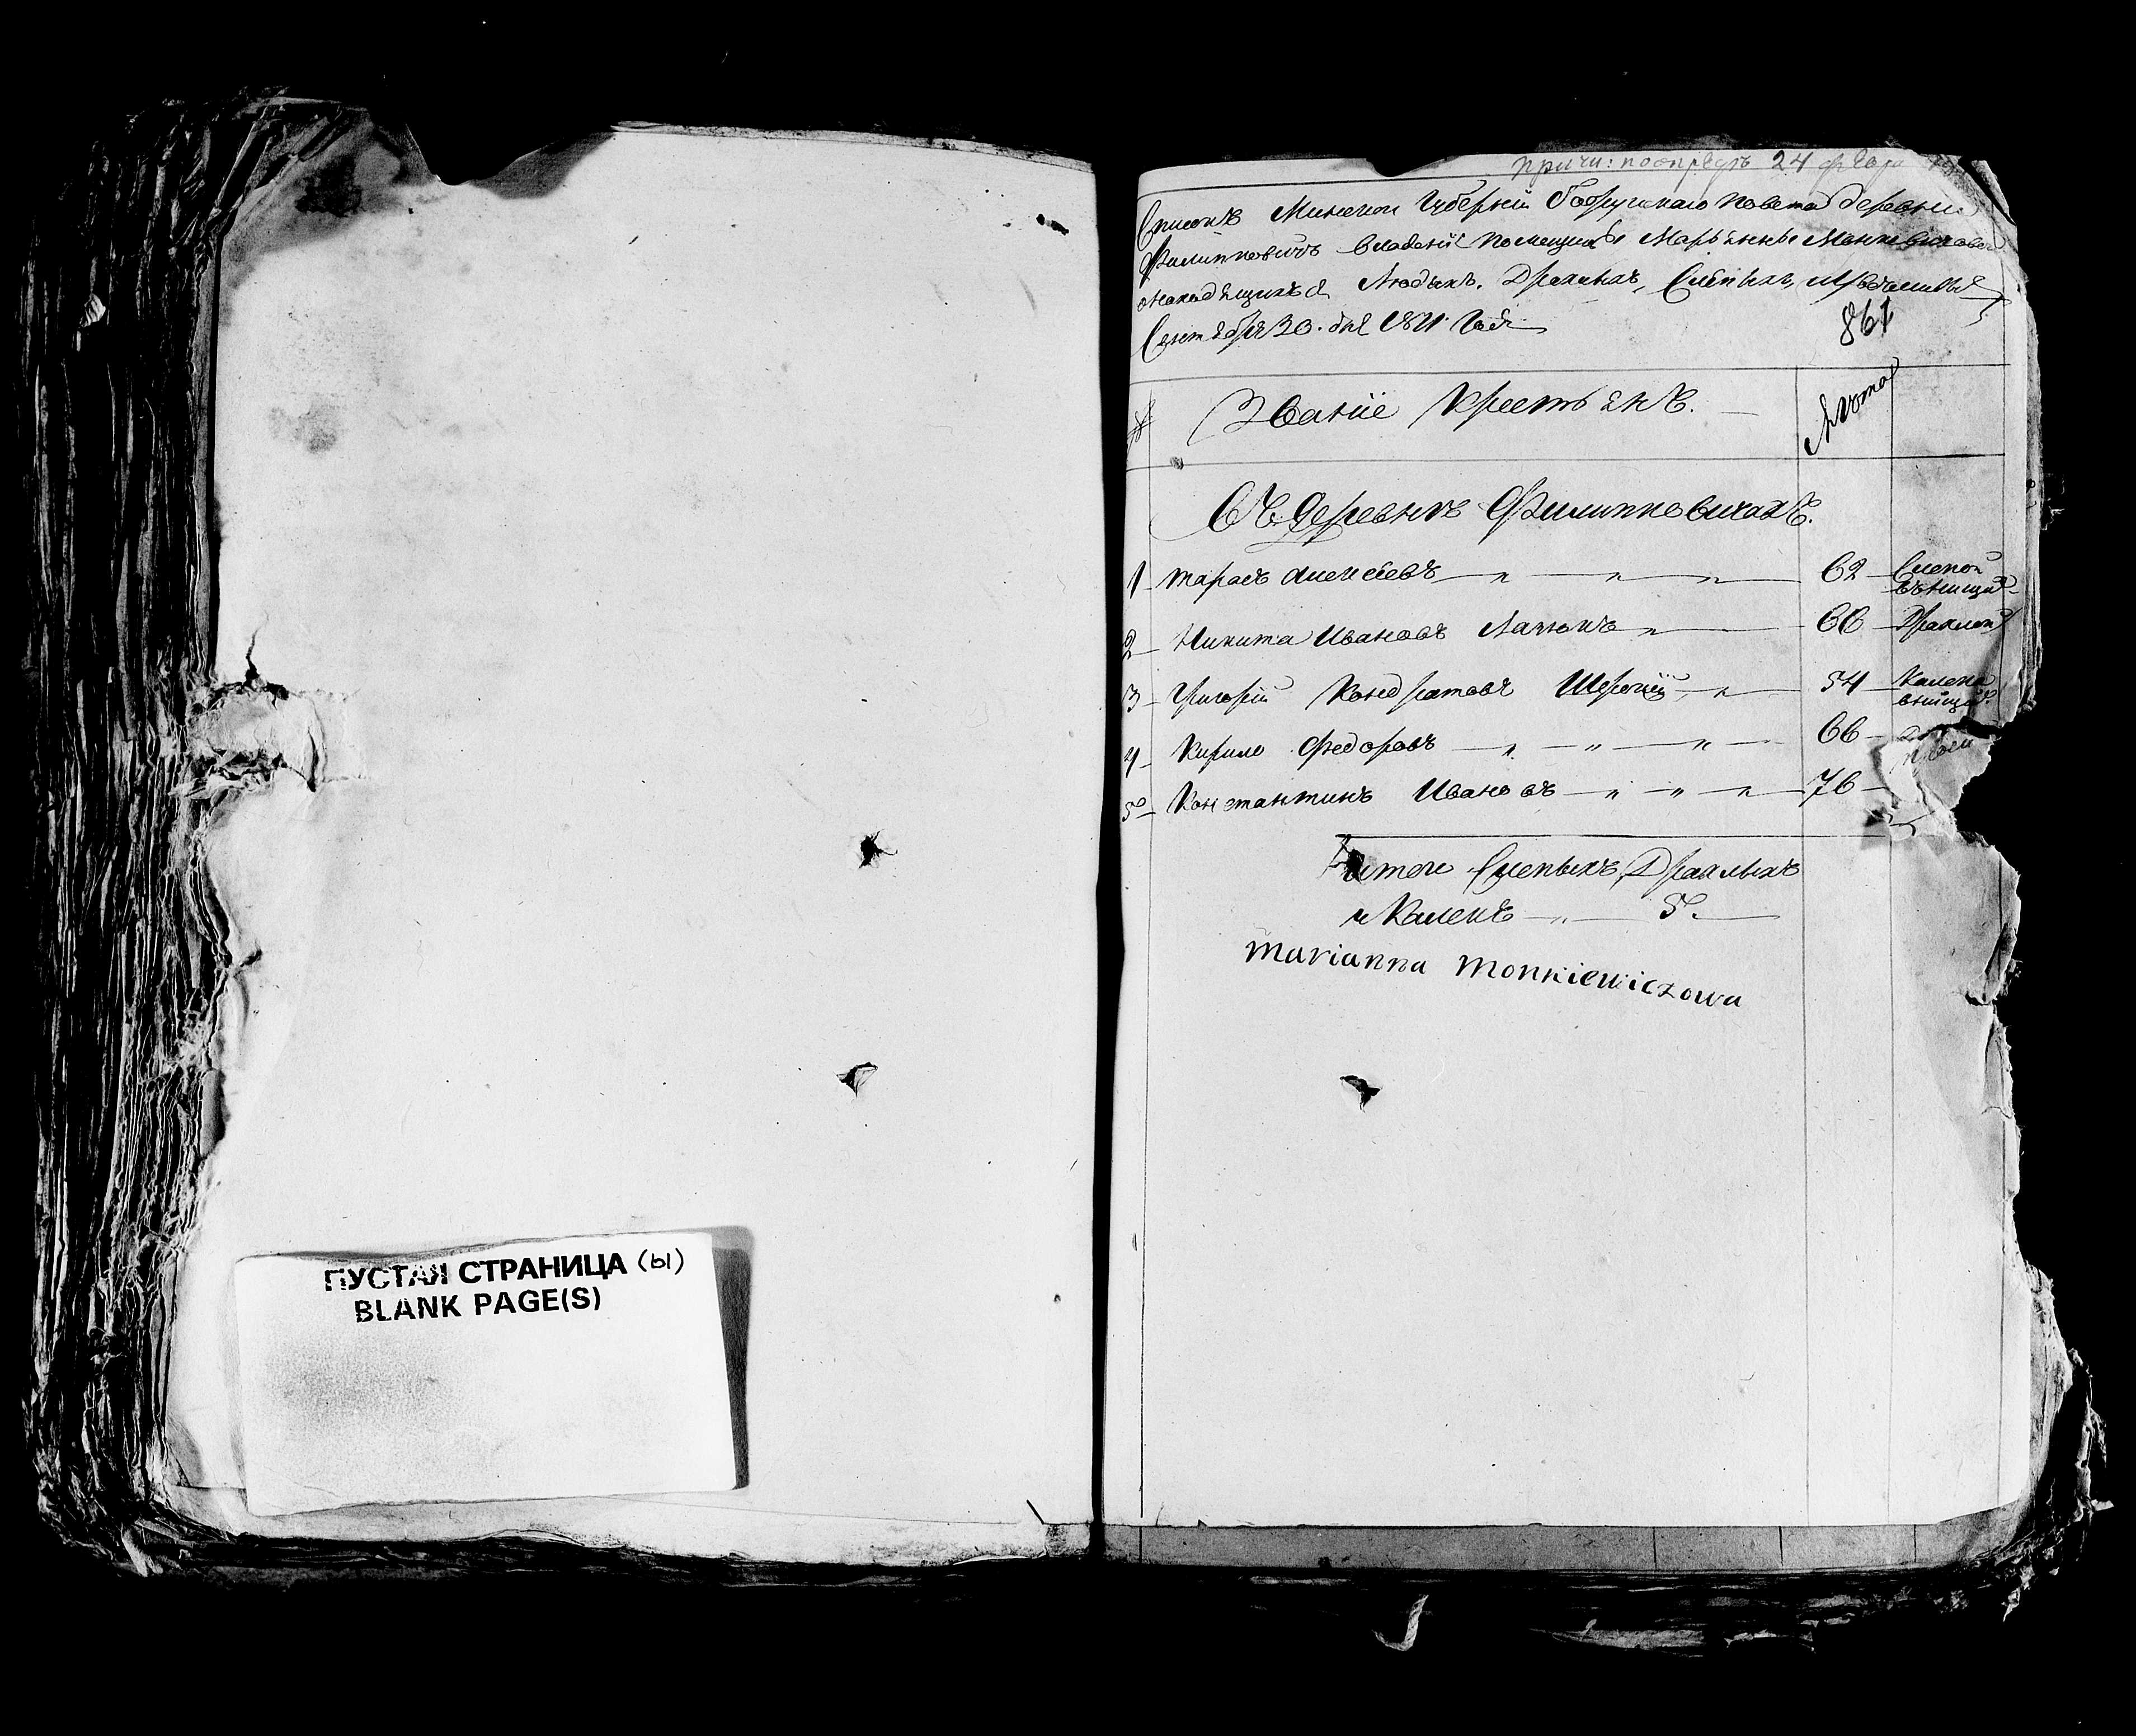 ПУСТАЯ СТРАНИЦА (ы)
BLANK PAGE(S)
24
Списокъ Минской Губернии Бобруйскаго повета деревни
Филипповичъ Владенiе помещицы Марьянны Монкевичовой
онаходящихся Людяхъ, Дряхлыхъ, Слепыхъ,
Сентября 30 дня Года
861
№ Званiе Крестьянъ. Лѣта
Въ Деревнѣ Филипповичахъ.
1 Тарасъ Алексеевъ 62 Слепой
2 Никита Ивановъ 66 Дряхлой
3 Григорiй Кондратовъ 54 Калека
4 Кирило Федоровъ 66
5 Константинъ Ивановъ 76
Итого Слепыхъ, Дряхлыхъ
и Калекъ 5.
Marianna Monkiewiczowa